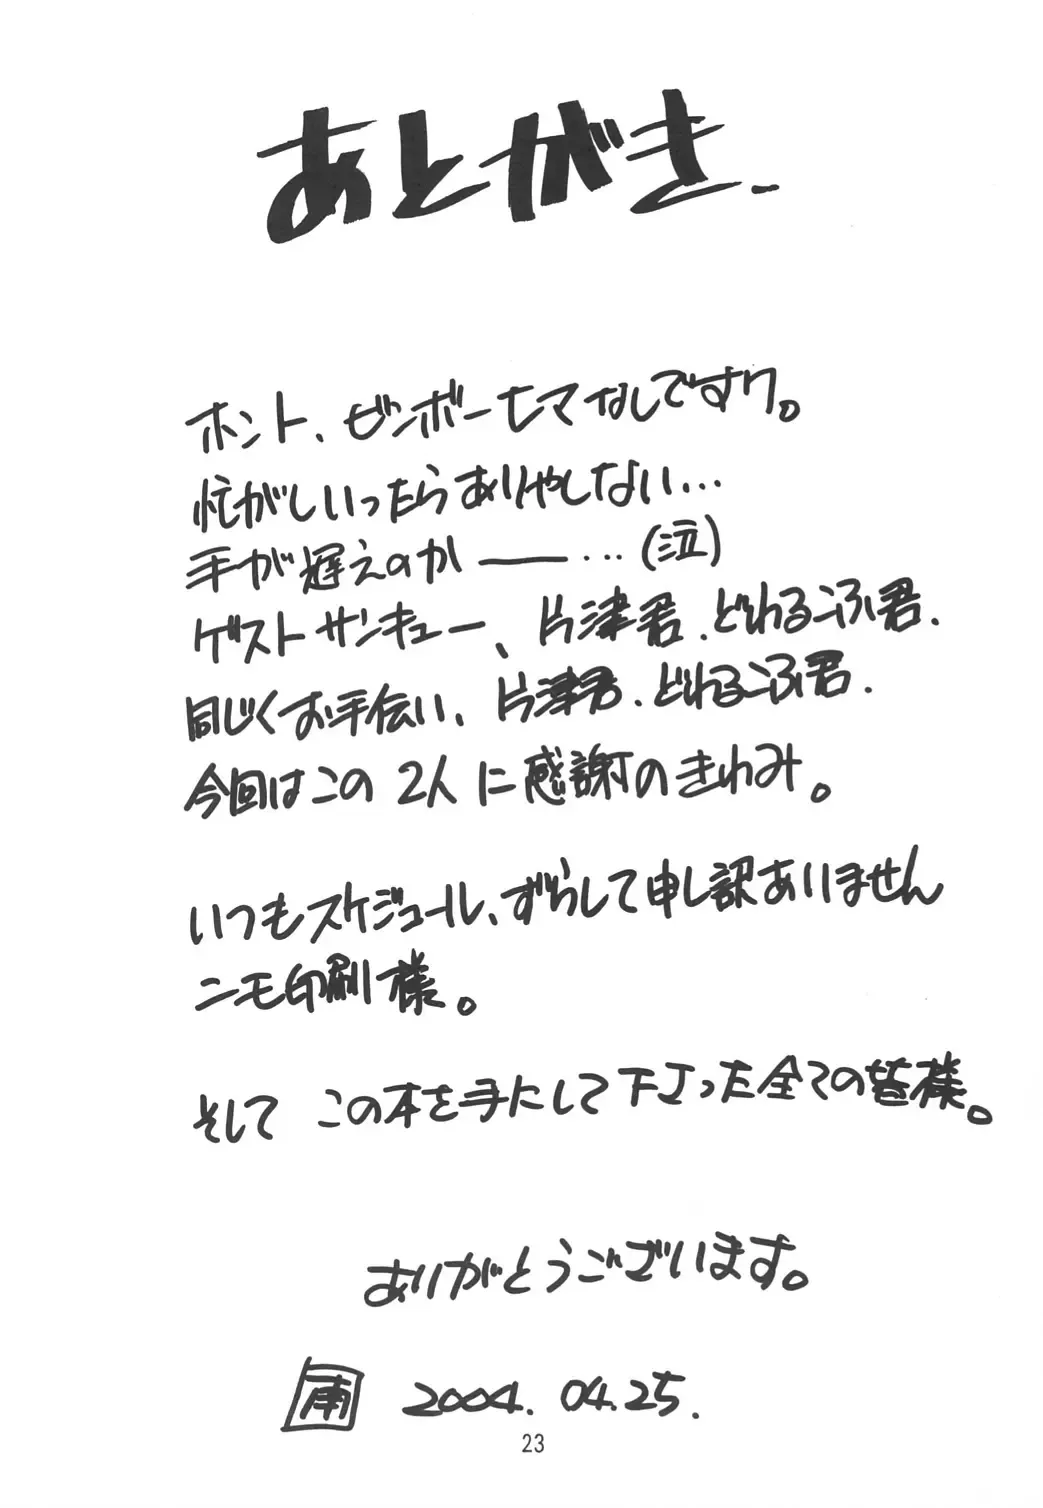 あとがき
ホント、ビンボーヒマなしですワ。
忙がしいったらありゃしない…
手が遅えのか――…(泣)
ゲストサンキュー、片津君.どわるこふ君.
同じくお手伝い、片津君.どわるこふ君.
今回はこの2人に感謝のきわみ。
いつもスケジュール、ずらして申し訳ありません
ニモ印刷様。
そして この本を手にして下さった全ての皆様。
ありがとうございます。
南 2004.04.25.
23